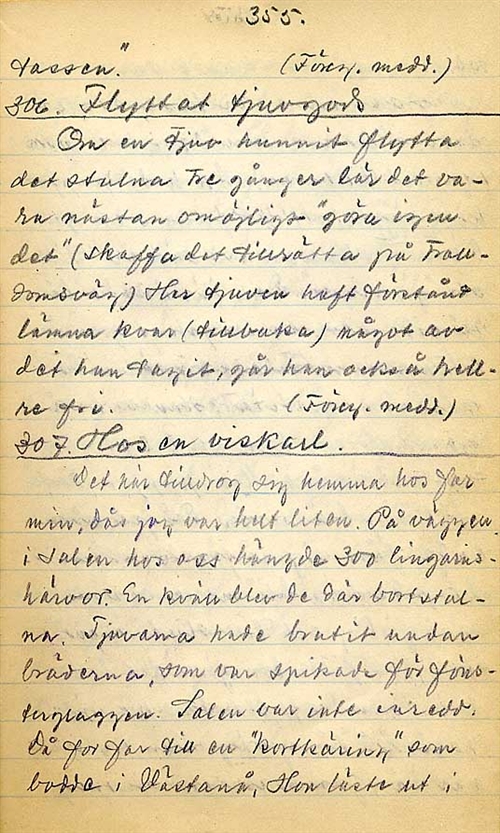 355.
tassen." (Föreg. medd.)
306. Flyttat tjuvgods
Om en tjuv hunnit flytta
det stulna tre gånger lär det va-
ra nästan omöjligt "göra igen
det" (skaffa det tillrätta på troll-
domsväg) Har tjuven haft förstånd
lämna kvar (tillbaka) något av
det han tagit, går han också hell-
re fri. (Föreg. medd.)
307. Hos en viskarl.
Det här tilldrog sig hemma hos far
min, då jag var helt liten. På väggen
i salen hos oss hängde 300 lingarns-
härvor. En kväll blev de där bortstul-
na. Tjuvarna hade brutit undan
bräderna, som var spikade för föns-
tergluggen. Salen var inte inredd.
Då for far till en "kortkäring" som
bodde i Västanå, Hon läste ut i